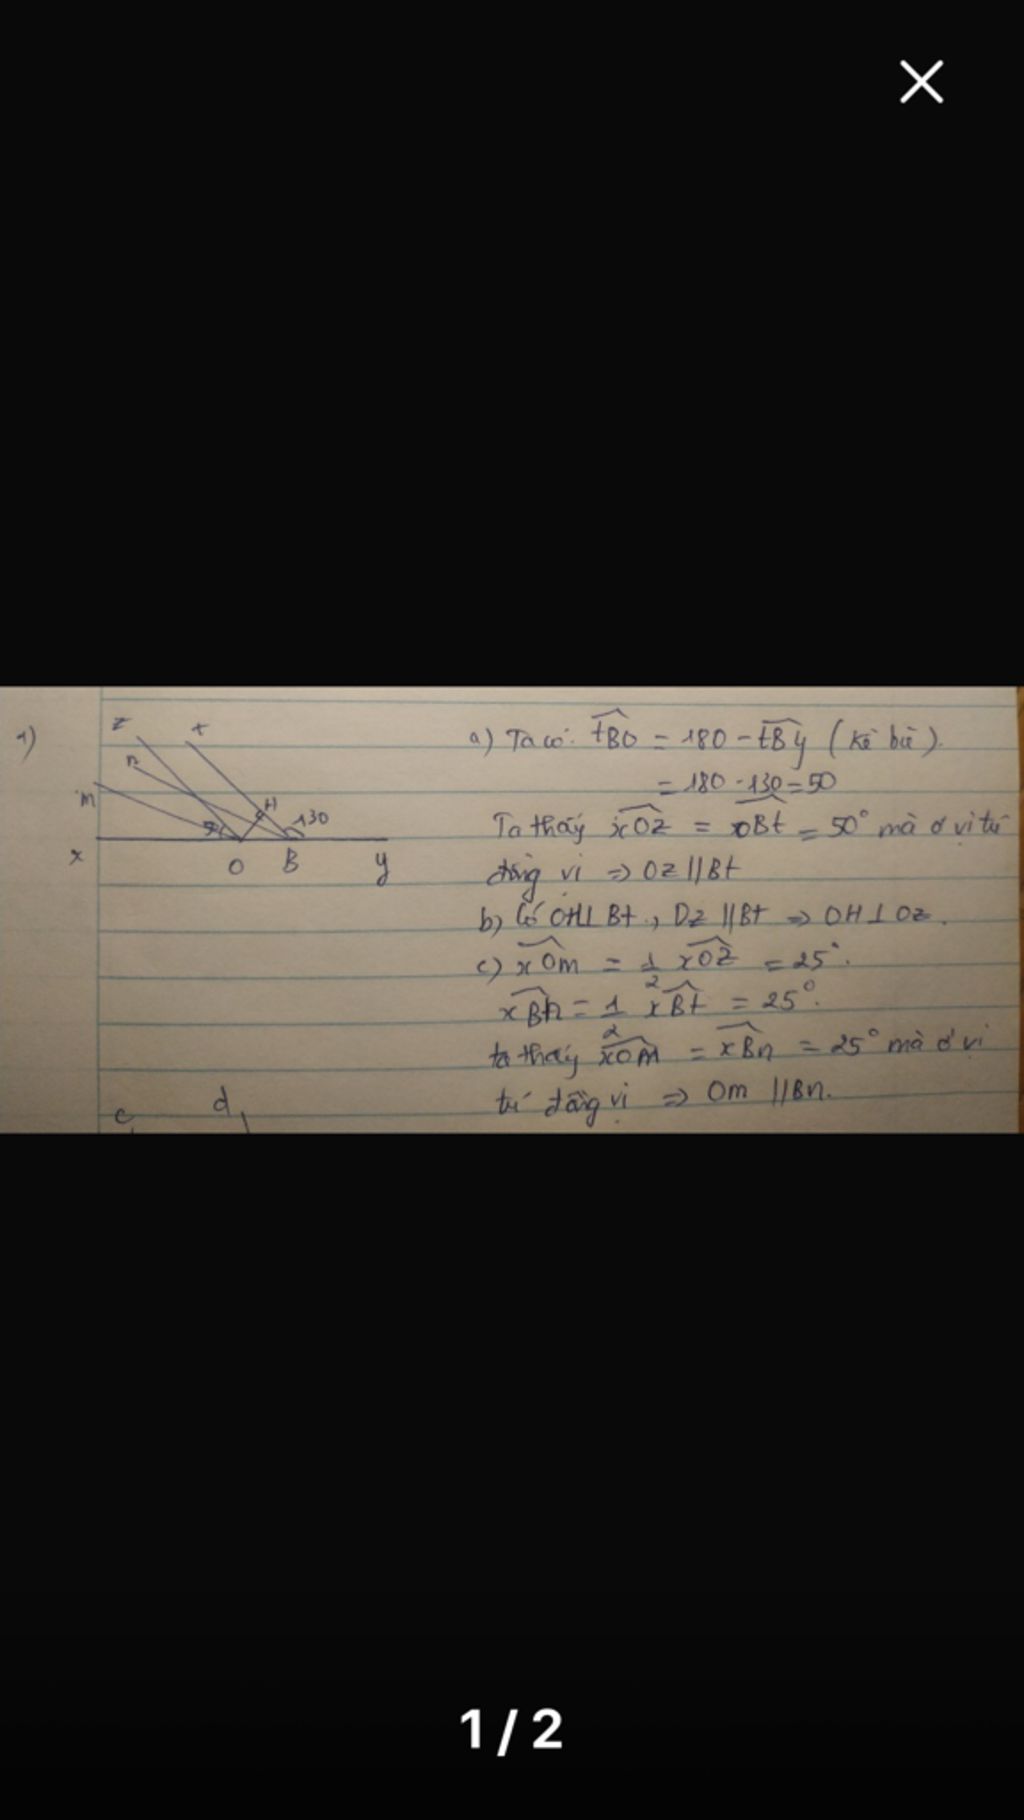 1)
z
t
n
m
H
130
x
O
B
y
a) Ta có: tBO = 180 - tBy (kề bù).
= 180 - 130 = 50
Ta thấy xOz = xOBt = 50° mà ở vị trí
đồng vị => Oz // Bt
b) Có OH ⊥ Bt, Oz // Bt => OH ⊥ Oz.
c) xOm = 1/2 xOz = 25°.
xBn = 1/2 xBt = 25°.
ta thấy xOm = xBn = 25° mà ở vị
trí đồng vị => Om // Bn.
c
d
1 / 2